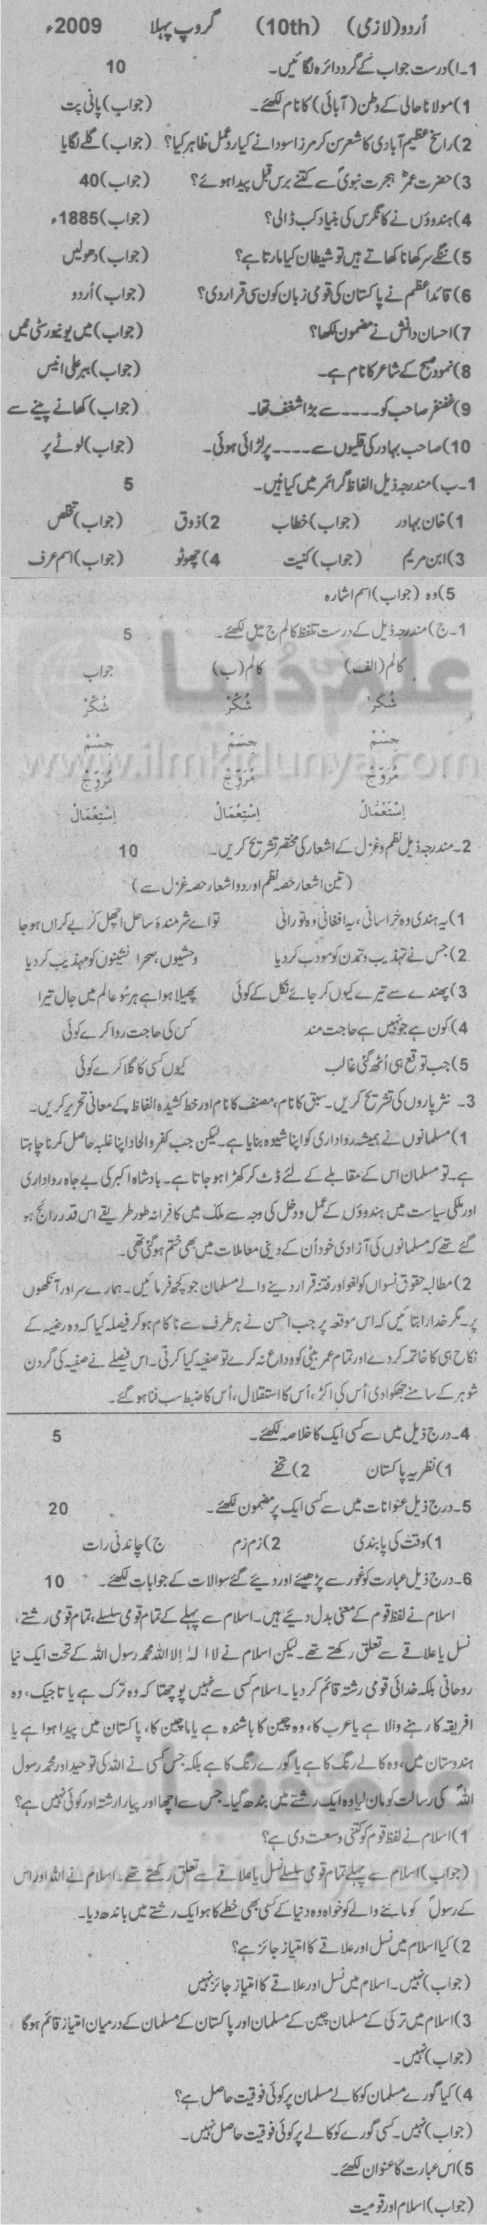 اُردو (لازمی) (10th) گروپ پہلا 2009ء
1۔ا) درست جواب کے گرد دائرہ لگائیں۔ 10
1) مولانا حالی کے وطن (آبائی) کا نام لکھئے۔ (جواب) پانی پت
2) راسخ عظیم آبادی کا شعر سن کر مرزا سودا نے کیا ردِعمل ظاہر کیا؟ (جواب) گلے لگایا
3) حضرت عمرؓ ہجرت نبویؐ سے کتنے برس قبل پیدا ہوئے؟ (جواب) 40
4) ہندوؤں نے کانگرس کی بنیاد کب ڈالی؟ (جواب) 1885ء
5) ننگے سر کھانا کھاتے ہیں تو شیطان کیا مارتا ہے؟ (جواب) دھولیں
6) قائداعظم نے پاکستان کی قومی زبان کون سی قرار دی؟ (جواب) اُردو
7) احسان دانش نے مضمون لکھا؟ (جواب) میں یونیورسٹی میں
8) نمود صبح کے شاعر کا نام ہے۔ (جواب) ببر علی انیس
9) غضنفر صاحب کو ۔۔۔۔ سے بڑا شغف تھا۔ (جواب) کھانے پینے سے
10) صاحب بہادر کی قلیوں سے ۔۔۔۔ پر لڑائی ہوئی۔ (جواب) لوٹے پر
1۔ب) مندرجہ ذیل الفاظ گرائمر میں کیا ہیں۔ 5
1) خان بہادر (جواب) خطاب 2) ذوق (جواب) تخلص
3) ابن مریم (جواب) کنیت 4) چھوٹو (جواب) اسم عرف
5) وہ (جواب) اسم اشارہ
1۔ج) مندرجہ ذیل کے درست تلفظ کالم ج میں لکھئے۔ 5
کالم (الف) کالم (ب) جواب
شُکَر شُکْر شُکْر
جِسْمْ جِسَمْ جِسْمْ
مُرَوِّجْ مُرَوَّجْ مُرَوَّجْ
اِسْتَعْمَالْ اِسْتِعْمَالْ اِسْتِعْمَالْ
2۔ مندرجہ ذیل نظم و غزل کے اشعار کی مختصر تشریح کریں۔ 10
(تین اشعار حصہ نظم اور دو اشعار حصہ غزل سے)
1) یہ ہندی وہ خراسانی، یہ افغانی وہ تورانی تو اے شرمندۂ ساحل اچھل کر بے کراں ہو جا
2) جس نے تہذیب و تمدن کو مودب کر دیا وحشیوں، صحرا نشینوں کو مہذب کر دیا
3) پھندے سے تیرے کیوں کر جائے نکل کے کوئی پھیلا ہوا ہے ہر سُو عالم میں جال تیرا
4) کون ہے جو نہیں ہے حاجت مند کس کی حاجت روا کرے کوئی
5) جب توقع ہی اُٹھ گئی غالب کیوں کسی کا گلا کرے کوئی
3۔ نثر پاروں کی تشریح کریں۔ سبق کا نام، مصنف کا نام اور خط کشیدہ الفاظ کے معانی تحریر کریں۔
1) مسلمانوں نے ہمیشہ رواداری کو اپنا شیوہ بنایا ہے۔ لیکن جب کفر و الحاد اپنا غلبہ حاصل کرنا چاہتا
ہے۔ تو مسلمان اس کے مقابلے کے لئے ڈٹ کر کھڑا ہو جاتا ہے۔ بادشاہ اکبر کی بے جا رواداری
اور ملکی سیاست میں ہندوؤں کے عمل و دخل کی وجہ سے ملک میں کافرانہ طور طریقے اس قدر رائج ہو
گئے تھے کہ مسلمانوں کی آزادی خود اُن کے دینی معاملات میں بھی ختم ہو گئی تھی۔
2) مطالبہ حقوق نسواں کو لغو اور فتنہ قرار دینے والے مسلمان جو کچھ فرمائیں۔ ہمارے سر اور آنکھوں
پر۔ مگر خدارا بتائیں کہ اس موقعہ پر جب احسن نے ہر طرف سے ناکام ہو کر فیصلہ کیا کہ وہ رضیہ کے
نکاح ہی کا خاتمہ کر دے اور تمام عمر بیٹی کو وداع نہ کرے تو صفیہ کیا کرتی۔ اس فیصلے نے صفیہ کی گردن
شوہر کے سامنے جھکوا دی اُس کی اکڑ، اُس کا استقلال، اُس کا ضبط سب فنا ہو گئے۔
4۔ درج ذیل میں سے کسی ایک کا خلاصہ لکھئے۔ 5
1) نظریہ پاکستان 2) تحفے
5۔ درج ذیل عنوانات میں سے کسی ایک پر مضمون لکھئے۔ 20
1) وقت کی پابندی 2) زم زم ج) چاندنی رات
6۔ درج ذیل عبارت کو غور سے پڑھیئے اور دیئے گئے سوالات کے جوابات لکھئے۔ 10
اسلام نے لفظ قوم کے معنی بدل دیئے ہیں۔ اسلام سے پہلے کے تمام قومی سلسلے، تمام قومی رشتے،
نسل یا علاقے سے تعلق رکھتے تھے۔ لیکن اسلام نے لا الٰہ الا اللہ محمد رسول اللہ کے تحت ایک نیا
روحانی بلکہ خدائی قومی رشتہ قائم کر دیا۔ اسلام کسی سے نہیں پوچھتا کہ وہ ترک ہے یا تاجیک، وہ
افریقہ کا رہنے والا ہے یا عرب کا، وہ چین کا باشندہ ہے یا ماچین کا، پاکستان میں پیدا ہوا ہے یا
ہندوستان میں، وہ کالے رنگ کا ہے یا گورے رنگ کا ہے بلکہ جس کسی نے اللہ کی توحید اور محمد رسول
اللہ کی رسالت کو مان لیا وہ ایک رشتے میں بندھ گیا۔ جس سے اچھا اور پیارا رشتہ اور کوئی نہیں ہے؟
1) اسلام نے لفظ قوم کو کتنی وسعت دی ہے؟
(جواب) اسلام سے پہلے تمام قومی سلسلے نسل یا علاقے سے تعلق رکھتے تھے۔ اسلام نے اللہ اور اس
کے رسولؐ کو ماننے والے کو خواہ وہ دنیا کے کسی بھی خطے کا ہو ایک رشتے میں باندھ دیا۔
2) کیا اسلام میں نسل اور علاقے کا امتیاز جائز ہے؟
(جواب) نہیں۔ اسلام میں نسل اور علاقے کا امتیاز جائز نہیں
3) اسلام میں ترکی کے مسلمان چین کے مسلمان اور پاکستان کے مسلمان کے درمیان امتیاز قائم ہوگا
(جواب) نہیں۔
4) کیا گورے مسلمان کو کالے مسلمان پر کوئی فوقیت حاصل ہے؟
(جواب) نہیں۔ کسی گورے کو کالے پر کوئی فوقیت حاصل نہیں۔
5) اس عبارت کا عنوان لکھئے۔
(جواب) اسلام اور قومیت
علم کی دُنیا
www.ilmkidunya.com